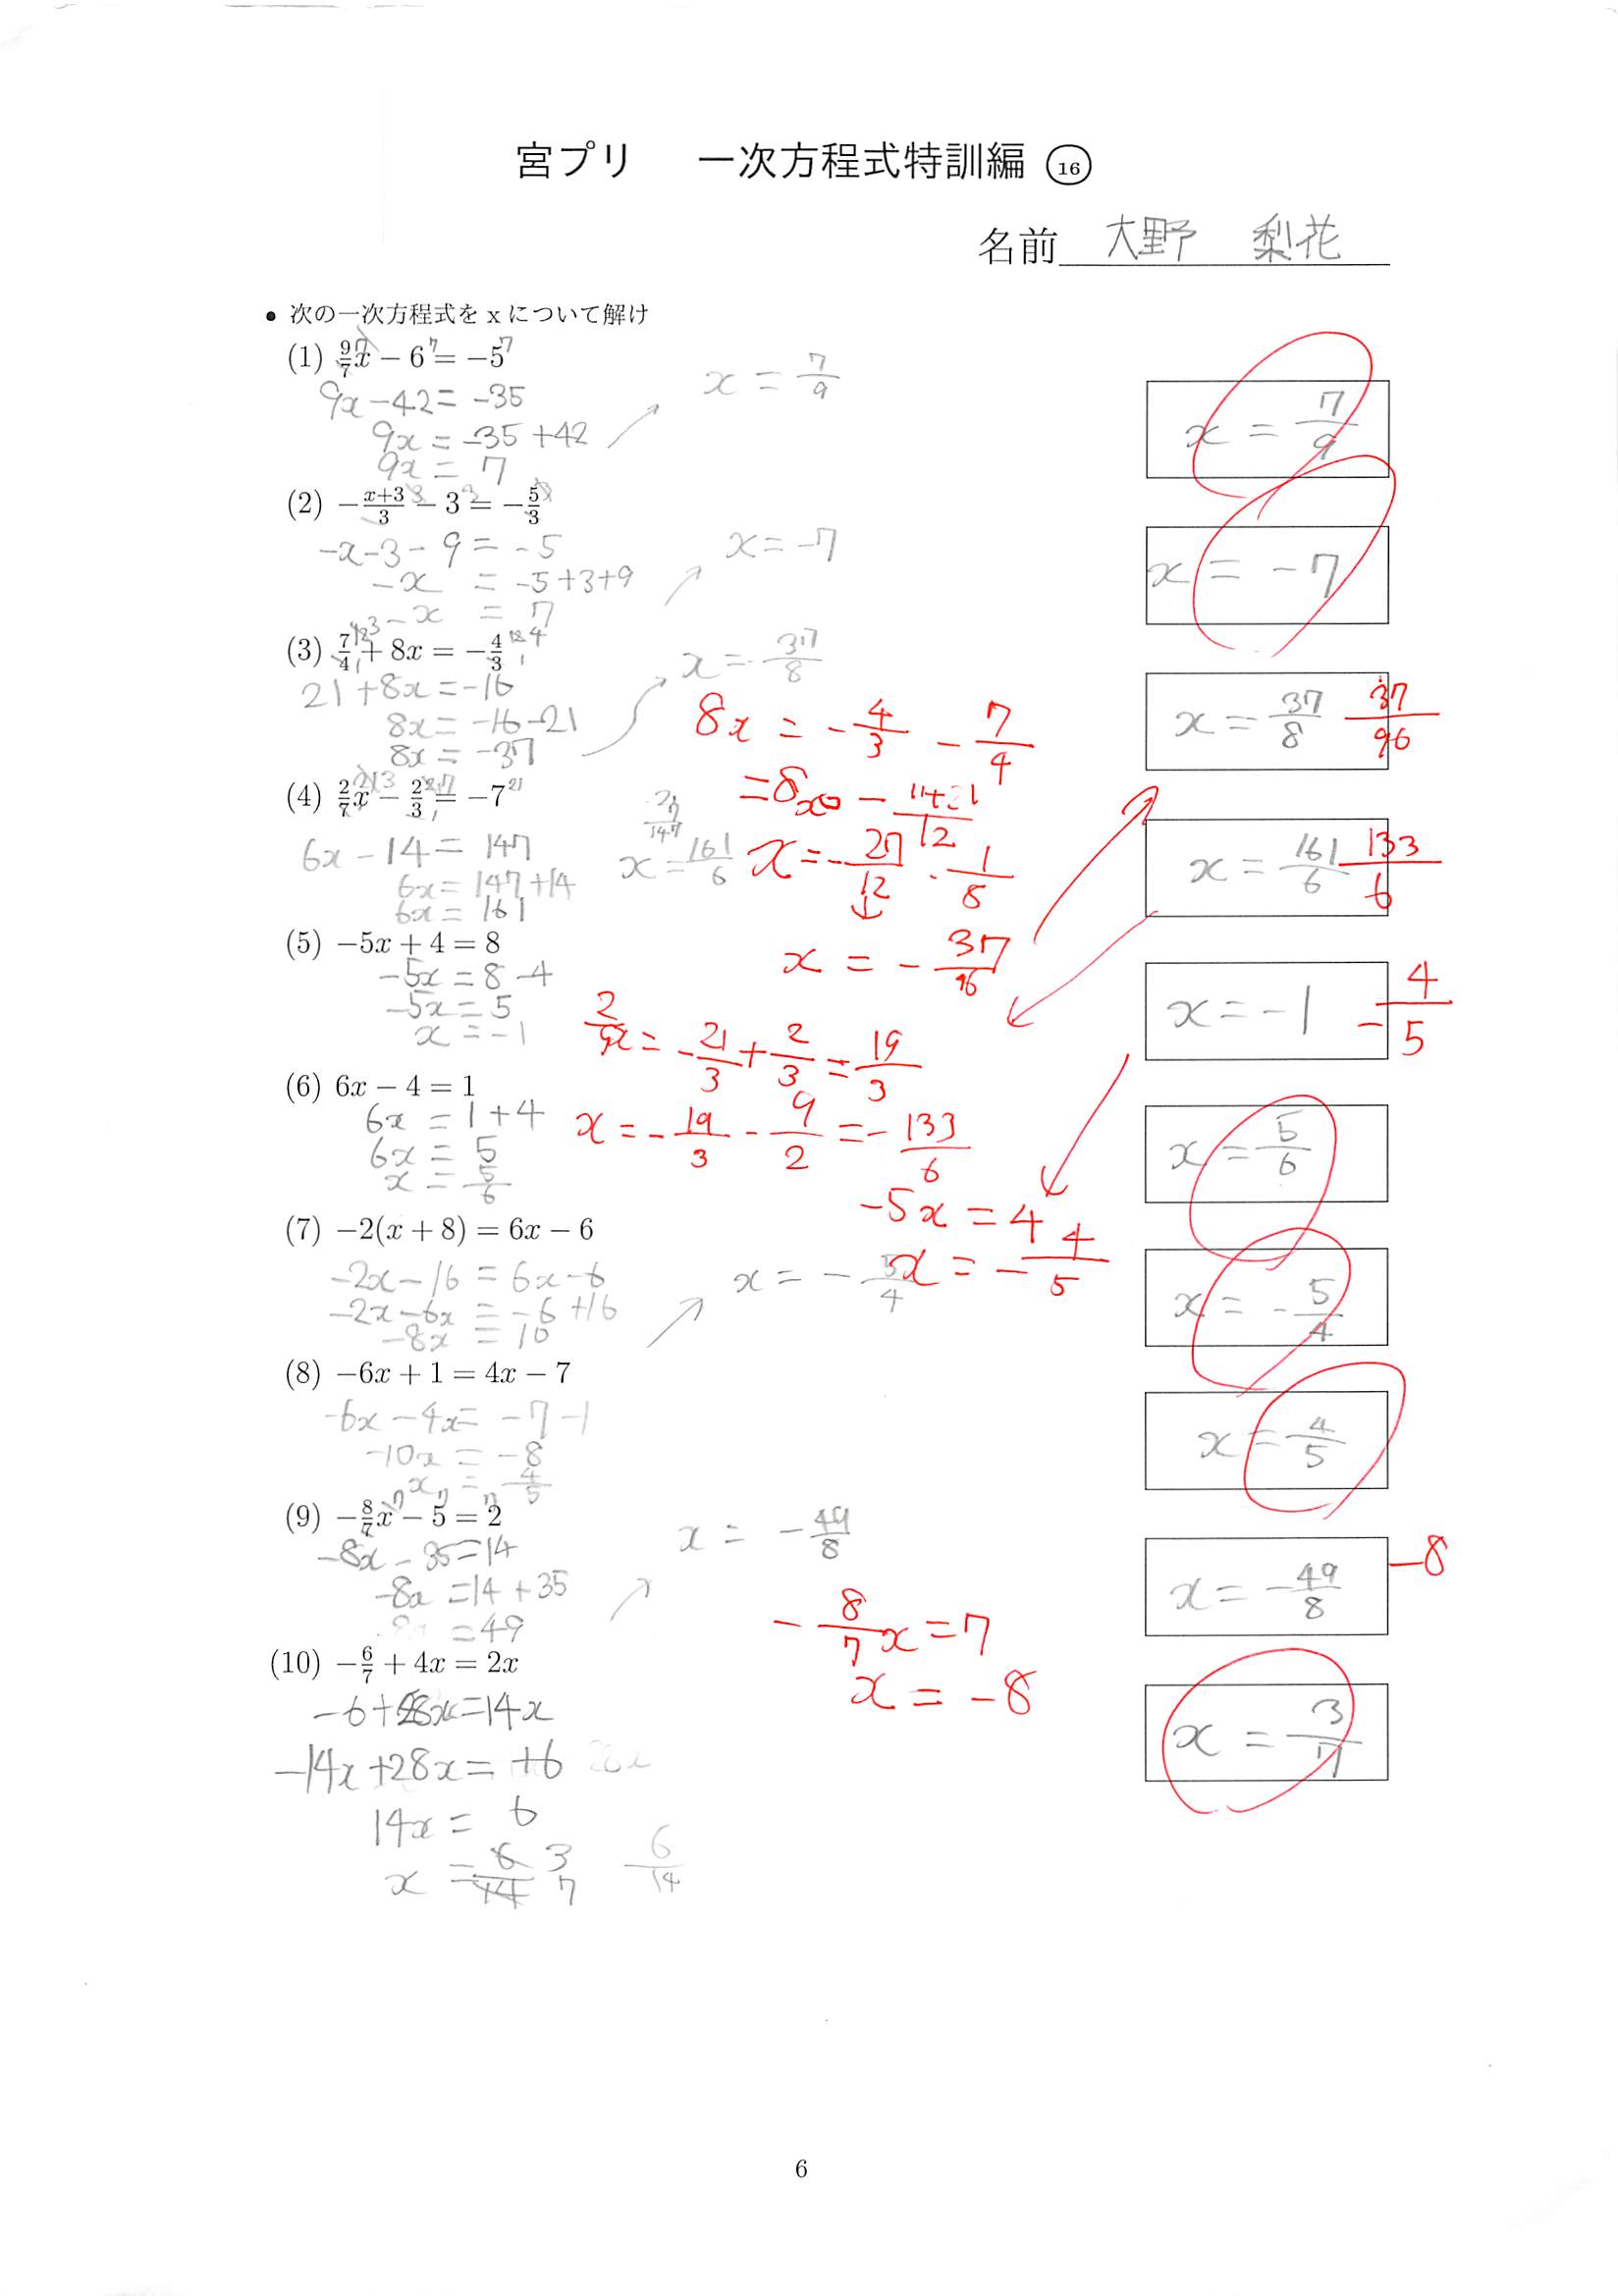 宮プリ 一次方程式特訓編 ⑯
名前 大野 梨花
• 次の一次方程式を x について解け
(1) 9/7 x − 6 = −5
9x − 42 = −35
9x = −35 + 42
9x = 7
x = 7/9
x = 7/9
(2) −(x+3)/3 − 3 = −5/3
−x − 3 − 9 = −5
−x = −5 + 3 + 9
−x = 7
x = −7
x = −7
(3) 7/4 + 8x = −4/3
21 + 8x = −16
8x = −16 − 21
8x = −37
x = −37/8
8x = −4/3 − 7/4
x = −37/96
x = 37/8
37/96
(4) 2/7 x − 2/3 = −7
6x − 14 = 147
6x = 147 + 14
6x = 161
x = 161/6
x = 161/6
133/6
(5) −5x + 4 = 8
−5x = 8 − 4
−5x = 5
x = −1
x = −1
−4/5
−21/3 + 2/3 = 19/3
x = −19/3 − 9/2 = −133/6
(6) 6x − 4 = 1
6x = 1 + 4
6x = 5
x = 5/6
x = 5/6
−5x = 4
x = −4/5
(7) −2(x + 8) = 6x − 6
−2x − 16 = 6x − 6
−2x − 6x = −6 + 16
−8x = 10
x = −5/4
x = −5/4
(8) −6x + 1 = 4x − 7
−6x − 4x = −7 − 1
−10x = −8
x = 4/5
x = 4/5
(9) −8/7 x − 5 = 2
−8x − 35 = 14
−8x = 14 + 35
= 49
x = −49/8
−8/7 x = 7
x = −8
x = −49/8
−8
(10) −6/7 + 4x = 2x
−6 + 28x = 14x
−14x + 28x = +6
14x = 6
x = 6/14 3/7
6/14
x = 3/7
6